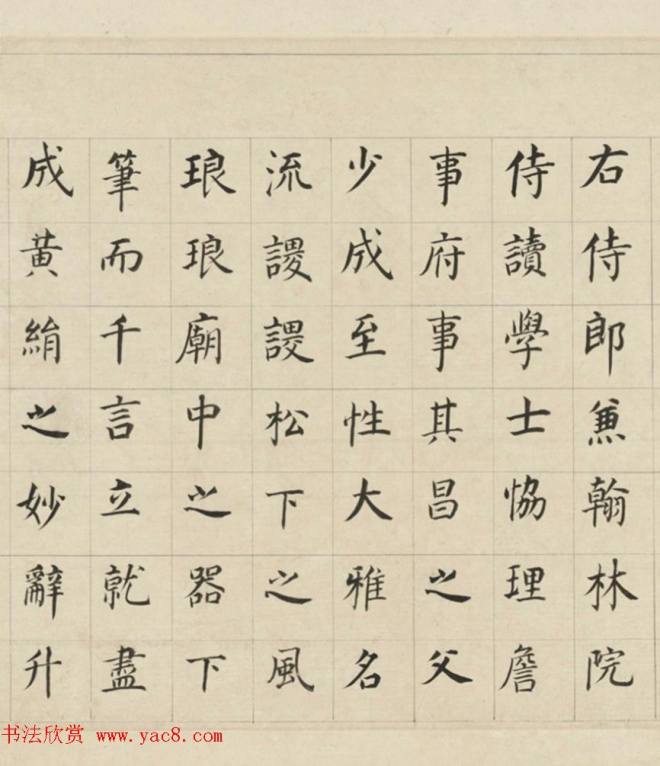 右侍郎兼翰林院
侍讀學士協理詹
事府事其昌之父
少成至性大雅名
流謖謖松下之風
琅琅廟中之器下
筆而千言立就盡
成黃絹之妙辭升
书法欣赏 www.yac8.com